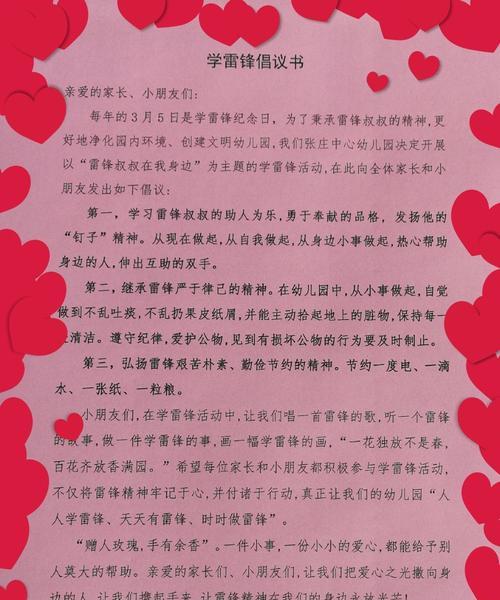 学雷锋倡议书
亲爱的家长、小朋友们:
每年的3月5日是学雷锋纪念日，为了秉承雷锋叔叔的精神,更
好地净化园内环境、创建文明幼儿园,我们张庄中心幼儿园决定开展
以“雷锋叔叔在我身边”为主题的学雷锋活动,在此向全体家长和小
朋友发出如下倡议:
第一，学习雷锋叔叔的助人为乐,勇于奉献的品格，发扬他的
“钉子”精神。从现在做起,从自我做起,从身边小事做起,热心帮助
身边的人,伸出互助的双手。
第二,继承雷锋严于律己的精神。在幼儿园中,从小事做起,自觉
做到不乱吐痰,不乱扔果皮纸屑,并能主动拾起地上的脏物,保持每一
清洁。遵守纪律,爱护公物,见到有损坏公物的行为要及时制止。
第三,弘扬雷锋艰苦朴素、勤俭节约的精神。节约一度电、一滴
水、一张纸、一粒粮。
小朋友们,在学雷锋活动中,让我们唱一首雷锋的歌,听一个雷锋
的故事,做一件学雷锋的事,画一幅学雷锋的画，“一花独放不是春,
百花齐放香满园。”希望每位家长和小朋友都积极参与学雷锋活动,
不仅将雷锋精神牢记于心,并付诸于行动,真正让我们的幼儿园“人
人学雷锋、天天有雷锋、时时做雷锋”。
“赠人玫瑰,手有余香”。一件小事,一份小小的爱心,都能给予别
人莫大的帮助。亲爱的家长们、小朋友们,让我们把爱心之光撒向身
边的人,让我们携起手来,让雷锋精神在我们的身边永放光芒!